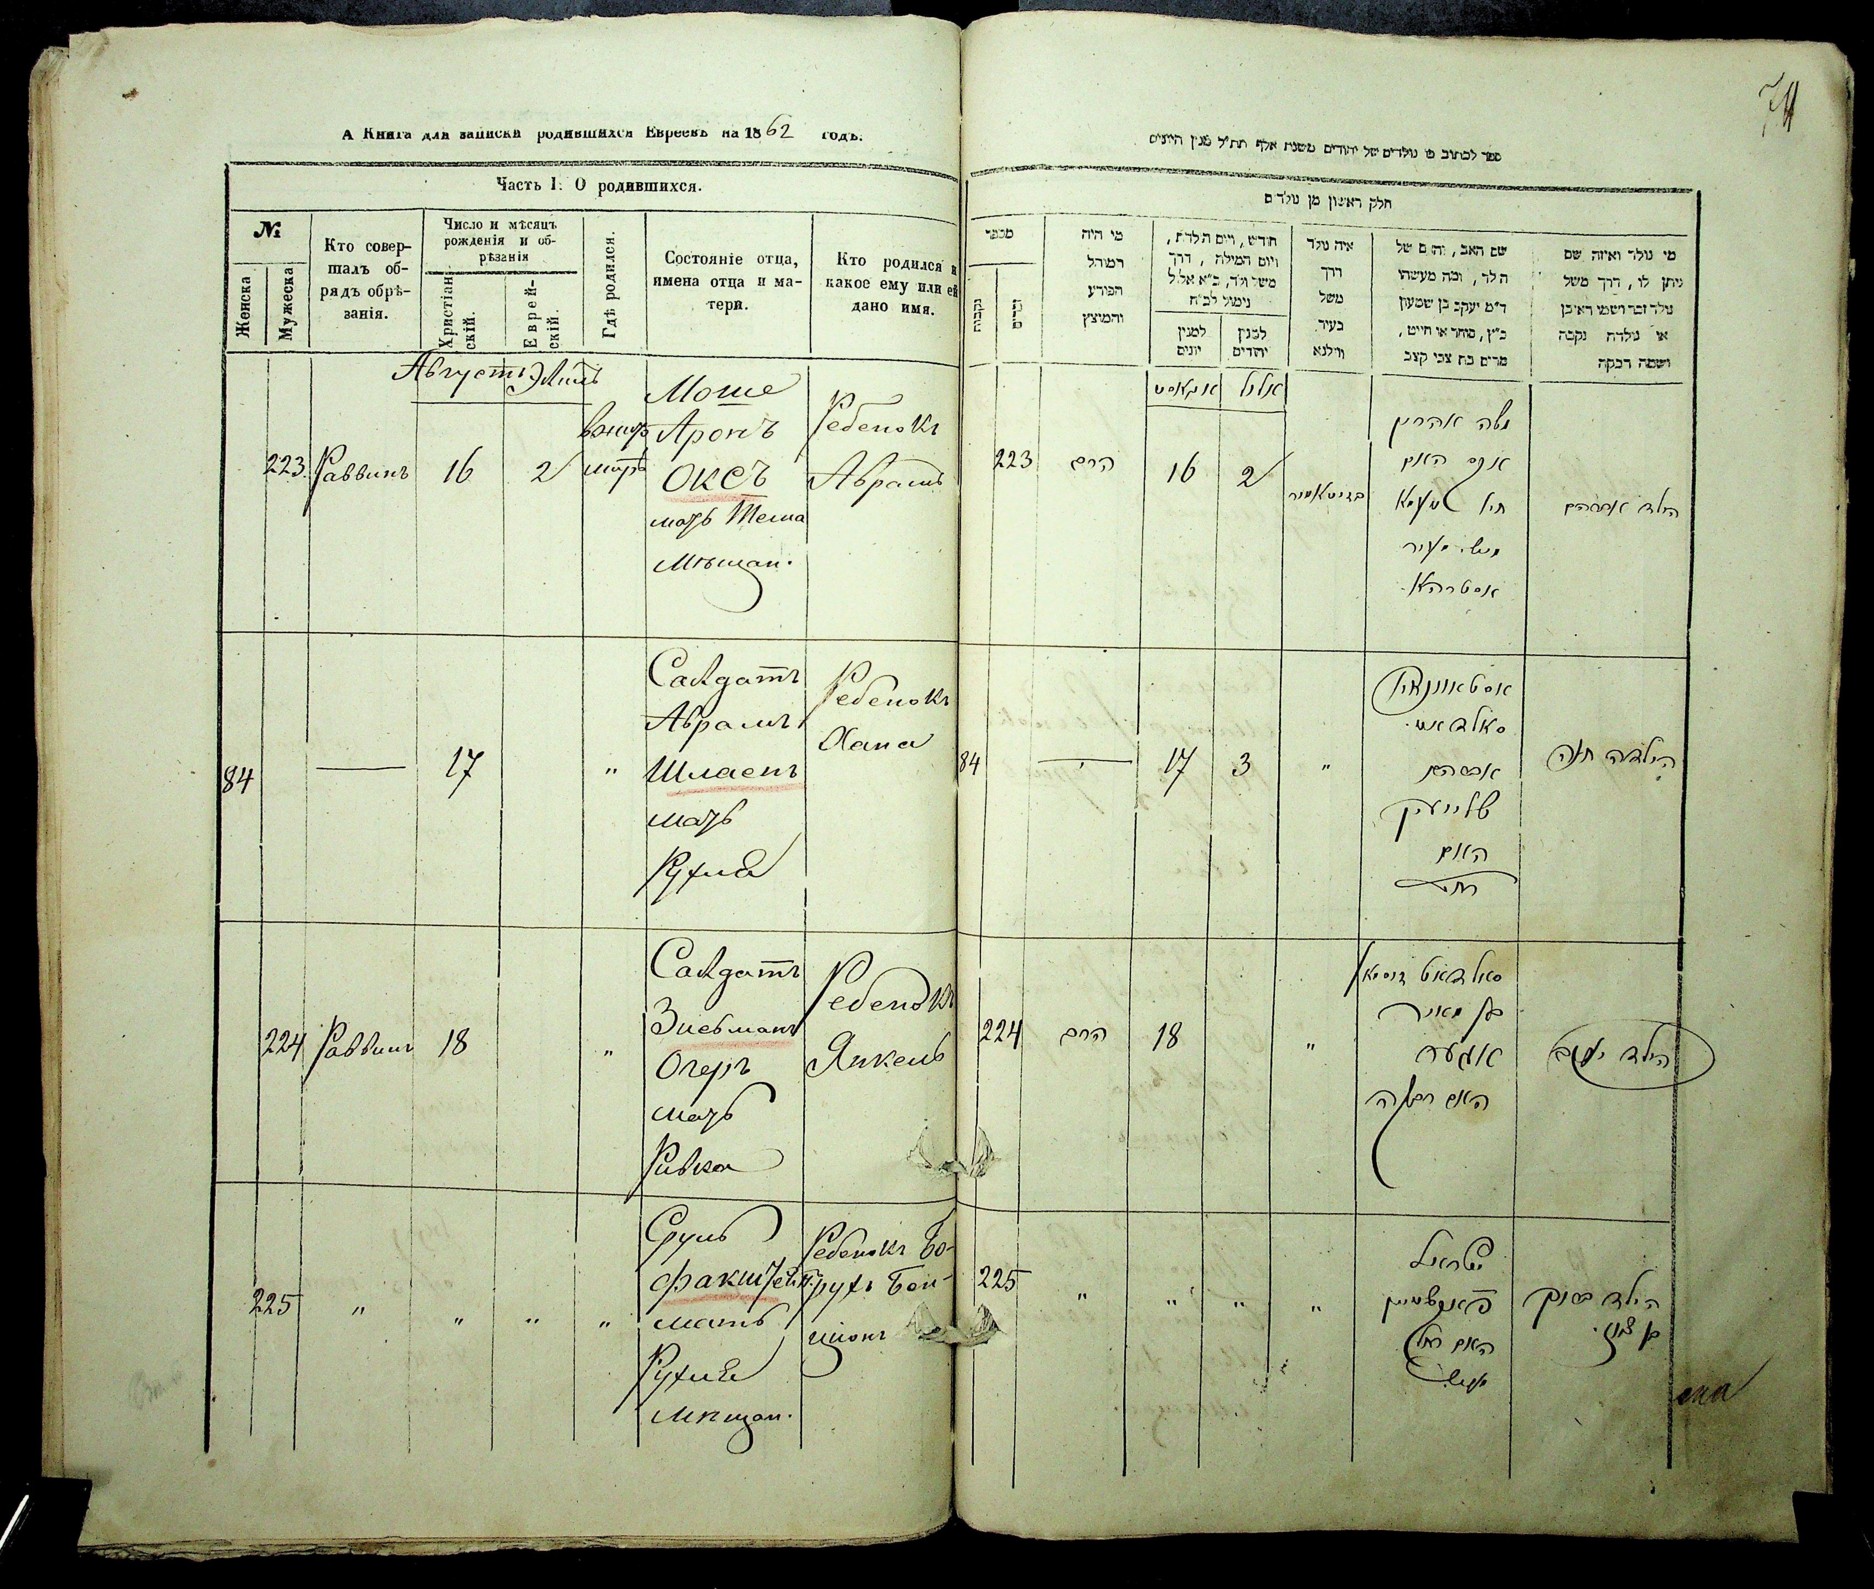 А Книга для записки родившихся Евреевъ на 1862 годъ.
Часть I. О родившихся.
№
Женска
Мужеска
Кто совер-
шалъ об-
рядъ обрѣ-
занія.
Число и мѣсяцъ
рожденія и об-
рѣзанія
Христіан-
скій.
Еврей-
скій.
Гдѣ родился.
Состояніе отца,
имена отца и ма-
тери.
Кто родился и
какое ему или ей
дано имя.
Августъ
223 Раввинъ 16 2
Моше
Аронъ
Оксъ
мать
Мѣщан.
Ребенокъ
Абрамъ
84 — 17 "
Салдатъ
Абрамъ
Шлаенъ
мать
Рухля
Ребенокъ
Хана
224 Раввинъ 18 "
Салдатъ
Зисьманъ
Огеръ
мать
Ривка
Ребенокъ
Янкель
225 " " " "
Сруль
Факштейн.
мать
Рухля
Мѣщан.
Ребенокъ Бо-
рухъ Бен-
ционъ
74
ספר לכתוב בו נולדים של יהודים משנת אלף תת״ל מנין היונים
חלק ראשון מן נולדים
מספר
נקבות
זכרים
מי היה
המוהל
הפורע
והמוצץ
חודש, ויום הולדת,
ויום המילה, דרך
משל נולד, כ״א אלול
נימול לכ״ח
למנין
יונים
למנין
יהודים
איה נולד
דרך
משל
בעיר
ווילנא
שם האב, והאם של
הילד, ומה מעשהו
ד״מ יעקב בן שמעון
כ״ץ, סוחר או חייט,
מרים בת צבי קצב
מי נולד ואיזה שם
ניתן לו, דרך משל
נולד זכר ושמו ראובן
או נולדה נקבה
ושמה רבקה
אויגוסט אלול
223 הרב 16 2
משה אהרון
אקס האם
הילד אברהם
84 — 17 3 "
סאלדאט
אברהם
שלייען
האם
רחל
הילדה חנה
224 הרב 18 "
האם רבקה
הילד יעקב
225 " " " "
ישראל
פאקשטיין
האם רחל
הילד ברוך
בן ציון